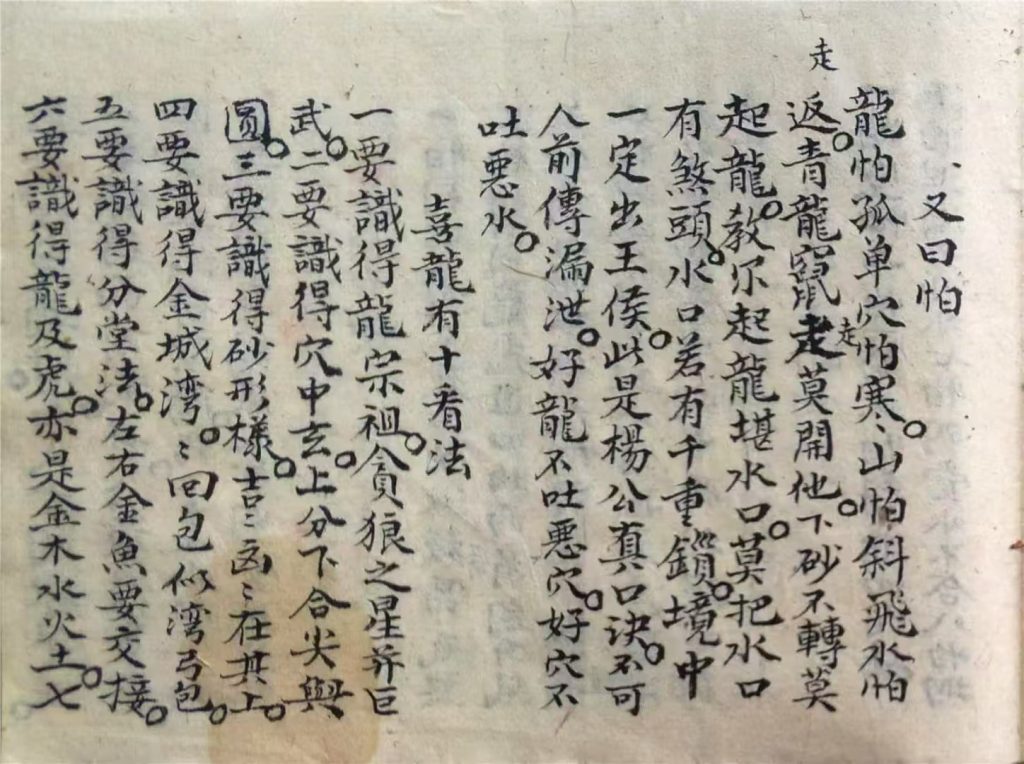 又曰怕
龍怕孤单穴怕寒。山怕斜飛水怕
走
返。青龍竄走莫開他。下砂不轉莫
走
起龍。教尔起龍堪水口。莫把水口
有煞頭。水口若有千重鎖。境中
一定出王侯。此是楊公真口诀。不可
人前傳漏泄。好龍不吐悪穴。好穴不
吐悪水。
喜龍有十看法
一要識得龍宗祖。貪狼之星并巨
武。二要識得穴中玄。上分下合尖與
圓。三要識得砂形樣。吉〻凶〻在其上。
四要識得金城湾。〻回包似湾弓包。
五要識得分堂法。左右金魚要交接。
六要識得龍及虎。亦是金木水火土。七